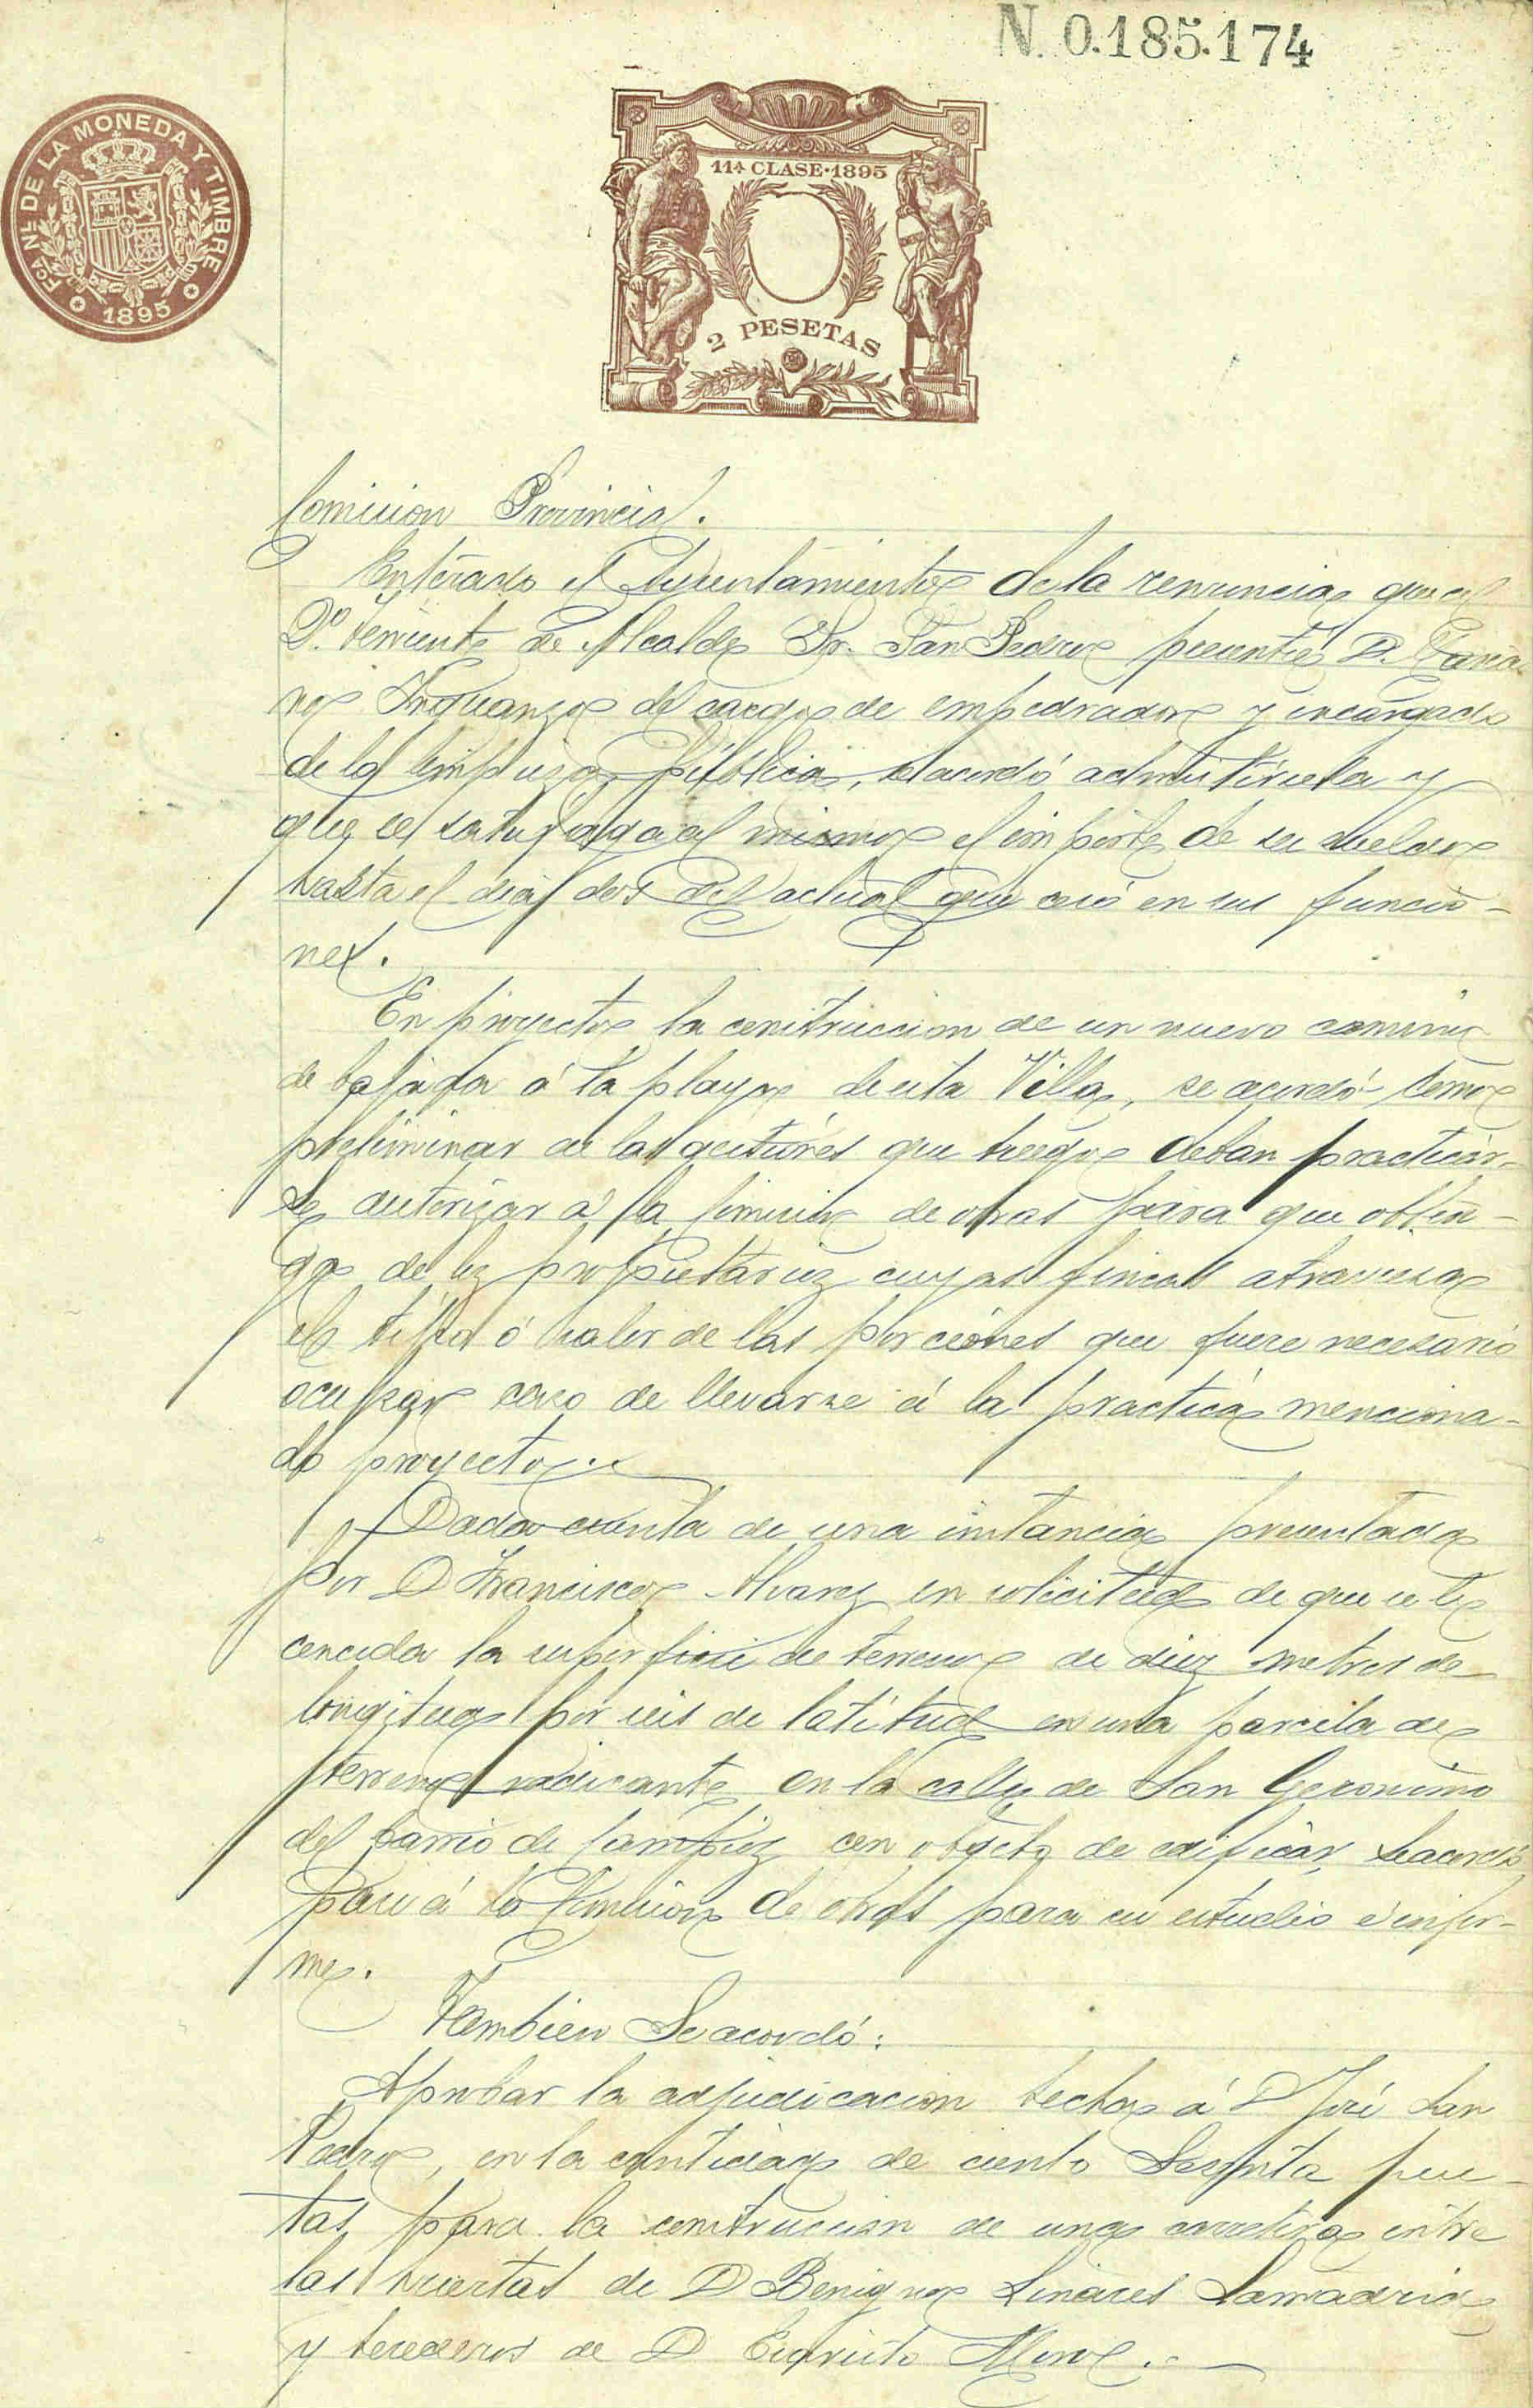 N. 0.185.174
FCA. NL. DE LA MONEDA Y TIMBRE
1895
11ª CLASE·1895
2 PESETAS
Comision Provincial.
Enterado el Ayuntamiento de la renuncia que el
2º. teniente de Alcalde Sr. San Pedro presentó D.
no Inguanzo del cargo de empedrador y encargado
de la limpieza pública, se acordó admitírsela y
que se satisfaga al mismo el importe de su sueldo
hasta el dia dos del actual que cesó en sus funcio-
nes.
En proyecto la construccion de un nuevo camino
de bajada á la playa de esta Villa, se acordó como
preliminar de las gestiones que luego deban practicar-
se autorizar á la Comision de obras para que obten-
ga de los propietarios cuyas fincas atraviesa
el tipo ó valor de las porciones que fuere necesario
ocupar caso de llevarse á la practica menciona-
do proyecto.
Dada cuenta de una instancia presentada
por D Francisco Alvarez en solicitud de que se le
conceda la superficie de terreno de diez metros de
longitud por seis de latitud en una parcela de
terreno radicante en la calle de San Geronimo
del barrio de con objeto de edificar, se acordó
pase á la Comision de obras para su estudio é infor-
me.
Tambien Se acordó:
Aprobar la adjudicacion hecha á D José San
Pedro, en la cantidad de ciento sesenta pese-
tas, para la construccion de una carretera entre
las huertas de D Benigno Linares Lamadrid
y herederos de D Evaristo